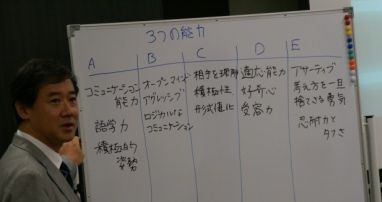 3つの能力
A
コミュニケーション
能力
語学力
積極的
姿勢
B
オープンマインド
アグレッシブ
ロジカルな
コミュニケーション
C
相手を理解
積極性
形式値化
D
適応能力
好奇心
受容力
E
アサーティブ
考え方を一旦
捨てさる勇気
忍耐力と
タフさ